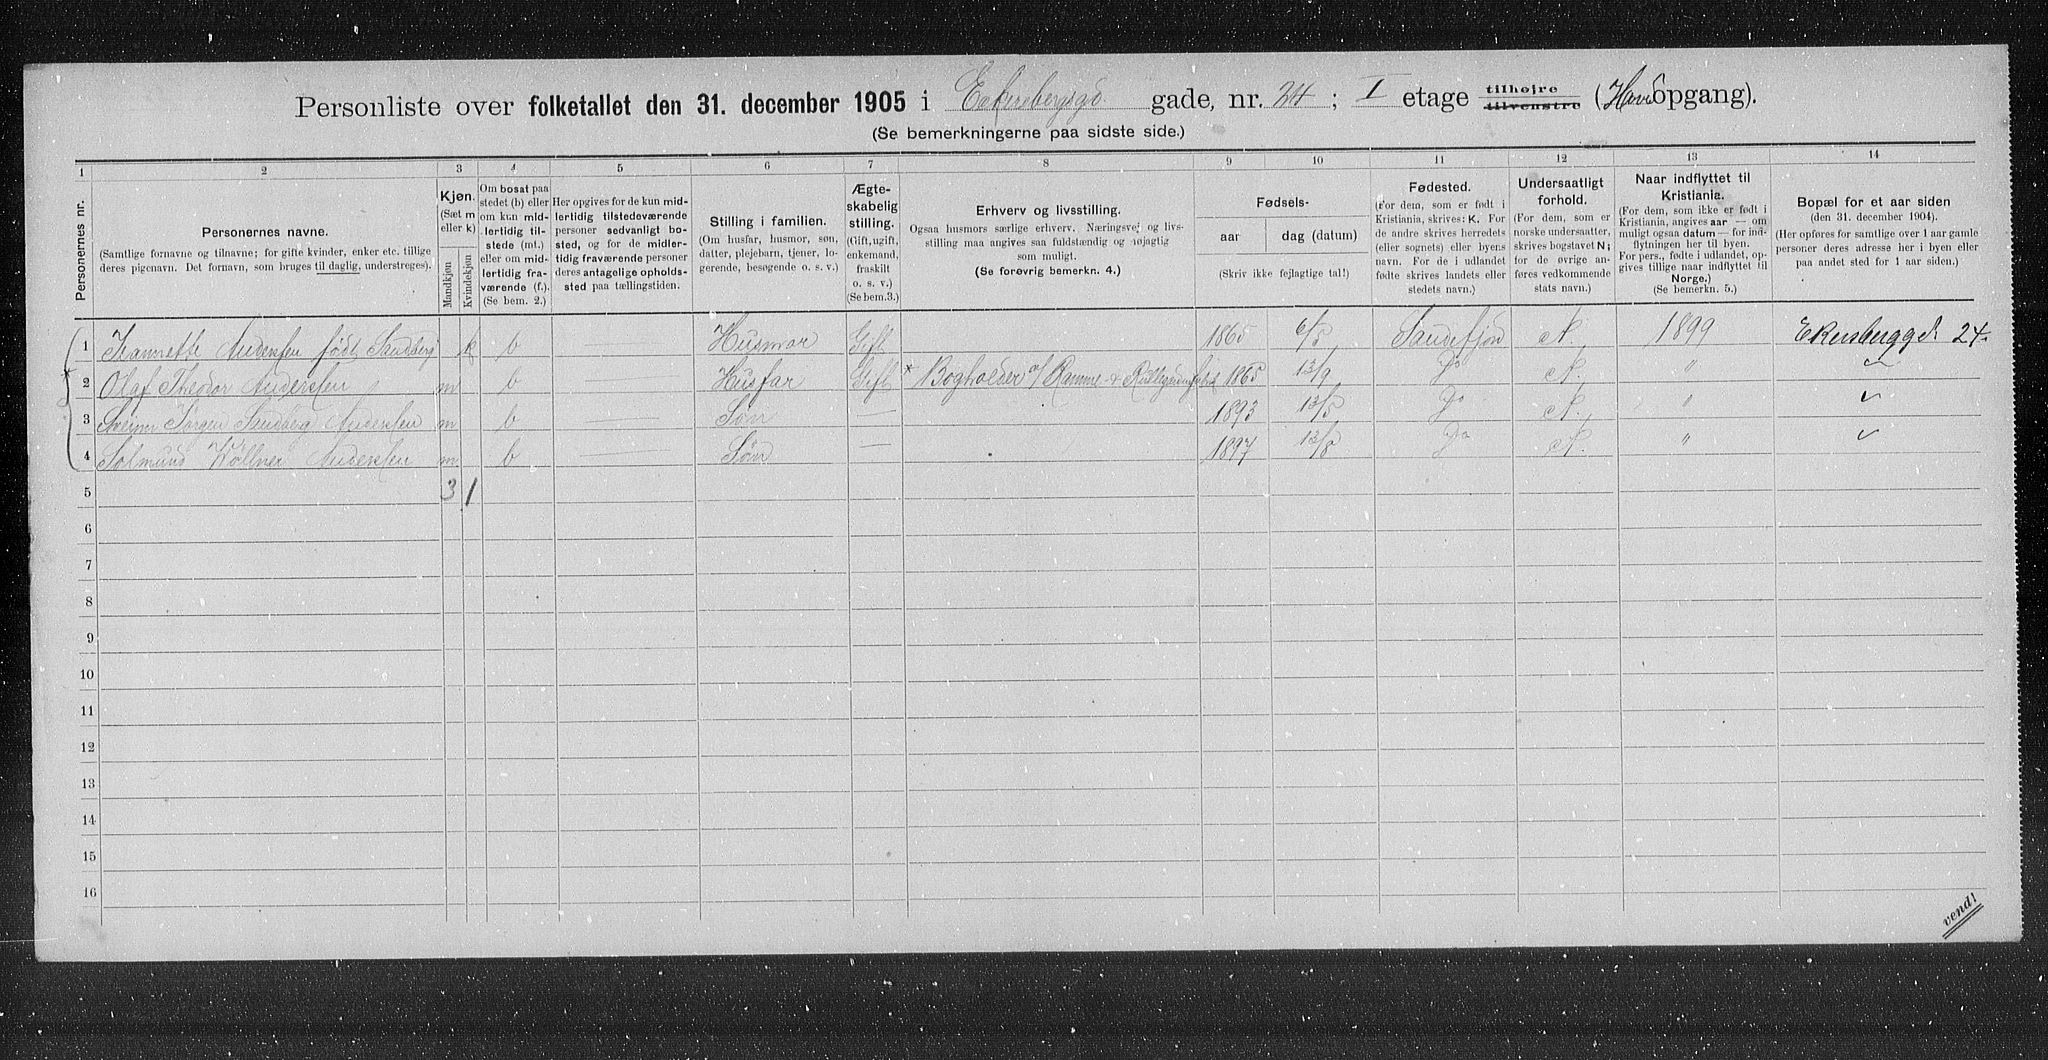 Personliste over folketallet den 31. december 1905 i Eckersbergsgd. gade, nr. 24 ; I etage tilhøjre tilvenstre (Hoved opgang).
(Se bemerkningerne paa sidste side.)
1 2 3 4 5 6 7 8 9 10 11 12 13 14
Personernes nr.
Personernes navne.
(Samtlige fornavne og tilnavne; for gifte kvinder, enker etc. tillige
deres pigenavn. Det fornavn, som bruges til daglig, understreges).
Kjøn.
(Sæt m
eller k)
Mandkjøn
Kvindekjøn
Om bosat paa
stedet (b) eller
om kun mid-
lertidig til-
stede (mt.)
eller om mid-
lertidig fra-
værende (f.).
(Se bem. 2.)
Her opgives for de kun mid-
lertidig tilstedeværende
personer sedvanlig bo-
sted, og for de midler-
tidig fraværende personer
deres antagelige opholds-
sted paa tællingstiden.
Stilling i familien.
(Om husfar, husmor, søn,
datter, plejebarn, tjener, lo-
gerende, besøgende o. s. v.)
Ægte-
skabelig
stilling.
(Gift, ugift,
enkemand,
fraskilt
o. s. v.)
(Se bem.3.)
Erhverv og livsstilling.
Ogsaa husmors særlige erhverv. Næringsvej og livs-
stilling maa angives saa fuldstændig og nøjagtig
som muligt.
(Se forøvrig bemerkn. 4.)
Fødsels-
aar
dag (datum)
(Skriv ikke fejlagtige tal!)
Fødested.
(For dem, som er født i
Kristiania, skrives: K. For
de andre skrives herredets
(eller sognets) eller byens
navn. For de i udlandet
fødte skrives landets eller
stedets navn.)
Undersaatligt
forhold.
(For dem, som er
norske undersaatter,
skrives bogstavet N;
for de øvrige an-
føres vedkommende
stats navn.)
Naar indflyttet til
Kristiania.
(For dem, som ikke er født i
Kristiania, angives aar — om
muligt ogsaa datum — for ind-
flytningen her til byen.
For pers., fødte i udlandet, op-
gives tillige naar indflyttet til
Norge.)
(Se bemerkn. 5.)
Bopæl for et aar siden
(den 31. december 1904).
(Her opføres for samtlige over 1 aar gamle
personer deres adresse her i byen eller
paa andet sted for 1 aar siden.)
1 Jeannette Andersen født Sandberg k b Husmor Gift 1865 6/5 Sandefjord N. 1899 Ekersberggd 24
* 2 Olaf Theodor Andersen m b Husfar Gift * Bogholder 1865 13/9 Do N. "
3 Jørgen Sandberg Andersen m b Søn — 1893 13/5 Do N. "
4 Solmund Andersen m b Søn — 1897 13/8 Do N. "
5 3 1
6
7
8
9
10
11
12
13
14
15
16
vend!